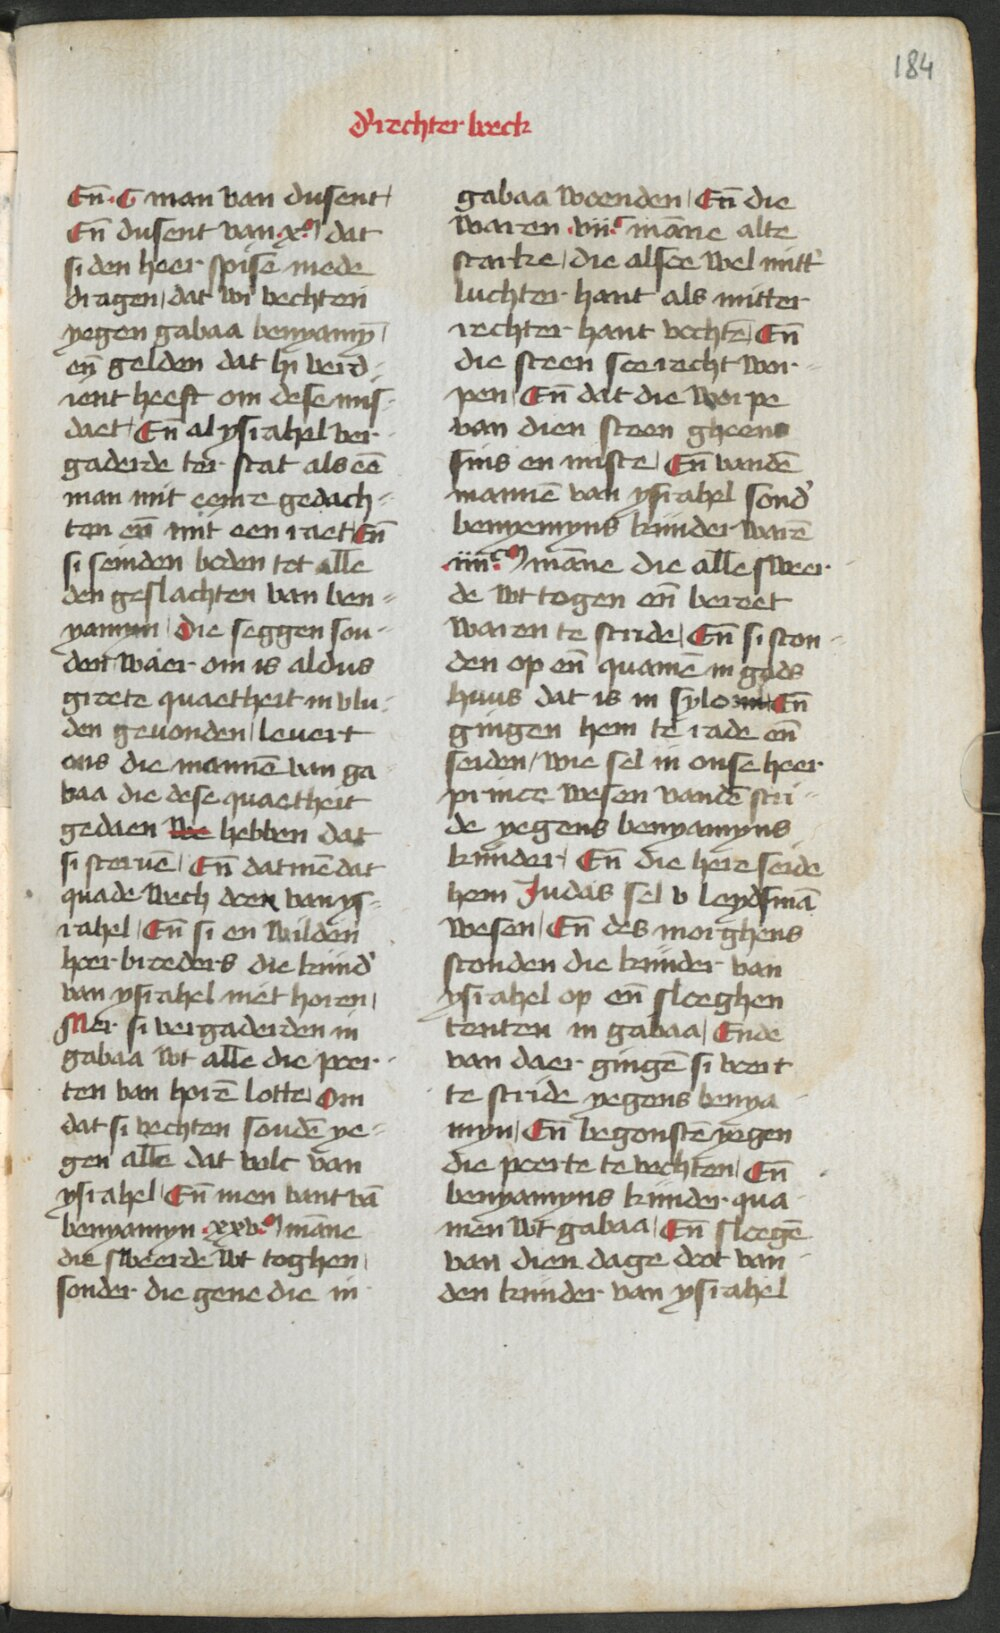 184
d'rechter boeck
En̄ .C. man van dusent /
En̄ dusent van .xm. dat
si den heer spise mede
dragen / dat wi vechten
yegen gabaa benyamȳ /
en̄ gelden dat hi verd-
ient heeft om dese mis-
daet / En̄ al ysrahel ver-
gaderde ter stat als eē
man mit eenre gedach-
ten en̄ mit een raet / En̄
si seinden boden tot alle
den geslachten van ben-
yamyn / Die seggen sou-
den Waer om is aldus
groete quaetheit in vlu-
den gevonden / levert
ons die mannē van ga
baa die dese quaetheit
gedaen hebben dat
si stervē / En̄ datmē dat
quade wech doen van ys-
rahel / En̄ si en wilden
hoer broeders die kind'
van ysrahel niet horen /
Mer si vergaderden in
gabaa wt alle die poer-
ten van horē lotte / Om
dat si vechten soudē ye-
gen alle dat volc van
ysrahel / En̄ men vant vā
benyamyn .xxvm. māne
die sweerde wt toghen /
sonder die gene die in
gabaa woenden / En̄ die
waren .viic. māne alte
starke / die alsoe wel mitt'
luchter hant als mitter
rechter hant vochtē / En̄
die steen soe recht wor-
pen / En̄ dat die worpe
van dien steen gheens
sins en miste / En̄ vandē
mannē van ysrahel sond'
benyemyns kinder warē
.iiiic.m. māne die alle sweer-
de wt togen en̄ bereet
waren te stride / En̄ si ston-
den op en̄ quamē in gods
huus dat is in sylo En̄
gingen hem te rade en̄
seiden / wie sel in onse heer
prince wesen vandē stri-
de yegens benyamyns
kinder / En̄ die here seide
hem Judas sel v leydsmā
wesen / En̄ des morghens
stonden die kinder van
ysrahel op en̄ sloeghen
tenten in gabaa / Ende
van daer gingē si voert
te stride yegens benya
myn / En̄ begonstē yegen
die poerte te vechten / En̄
benyamyns kinder qua
men wt gabaa / En̄ sloegē
van dien dage doot van
den kinder van ysrahel